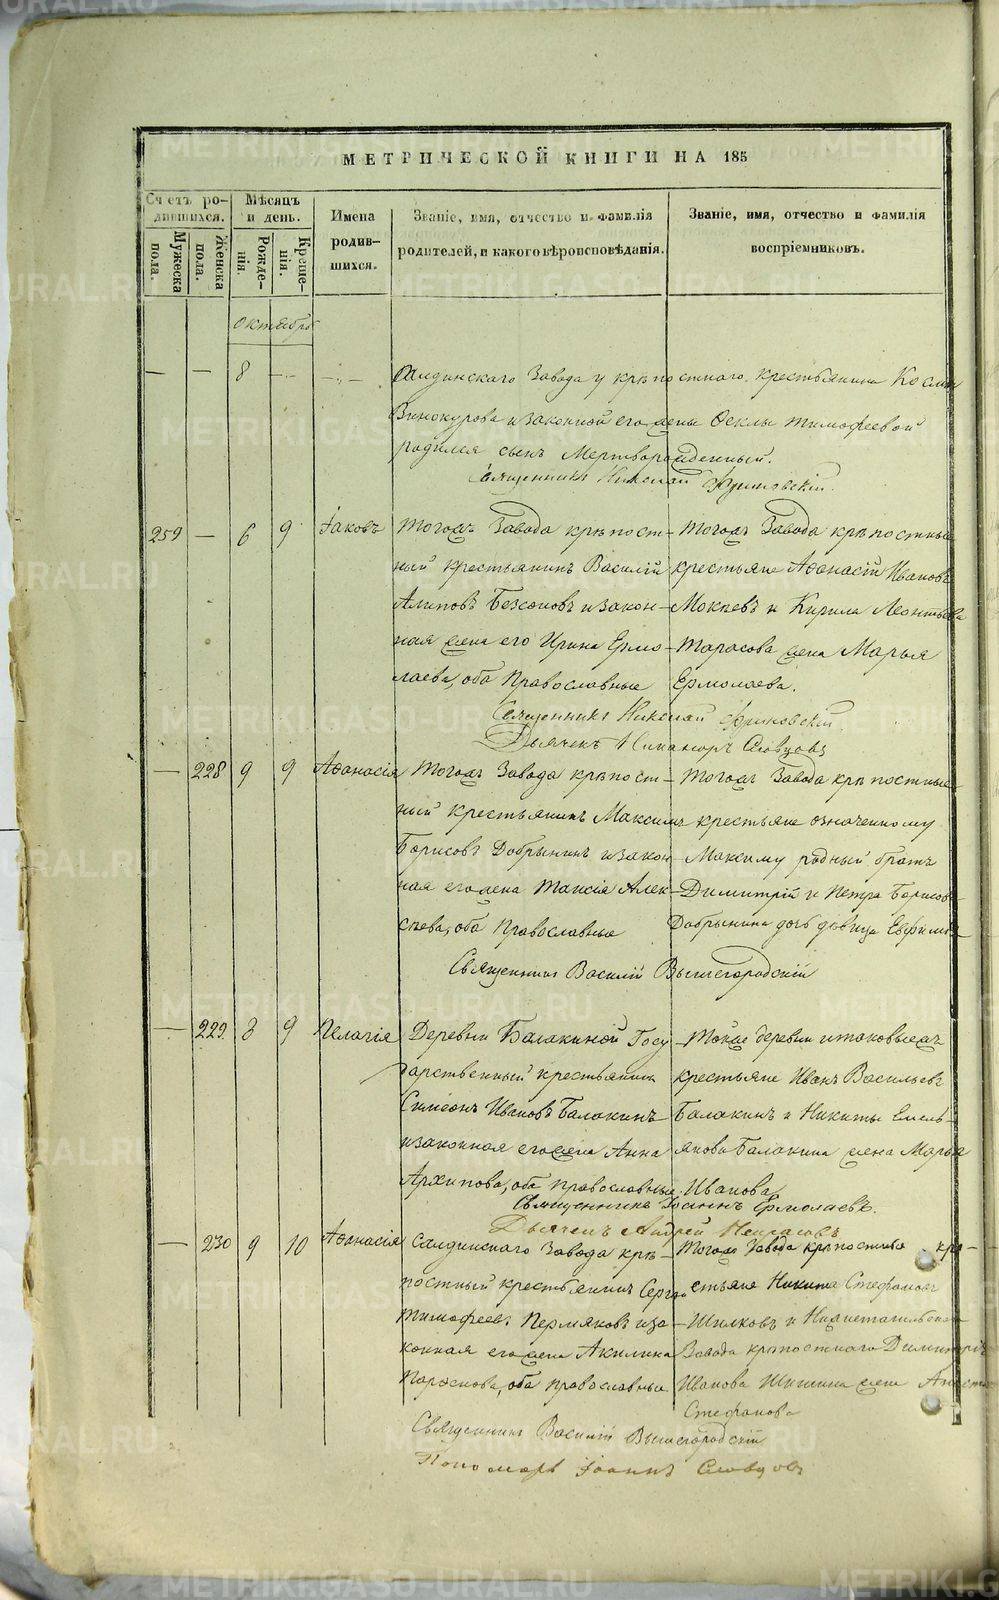 МЕТРИЧЕСКОЙ КНИГИ НА 185
Счетъ ро-
дившихся.
Мужеска
пола.
Женска
пола.
Мѣсяцъ
и день.
Рожде-
нія.
Креще-
нія.
Имена
родив-
шихся.
Званіе, имя, отчество и фамилія
родителей, и какого вѣроисповѣданія.
Званіе, имя, отчество и фамилія
воспріемниковъ.
Октября
— — 8 — —
Салдинскаго Завода у крѣпостнаго крестьянина Космы
Винокурова и законной его жены Феклы Тимофеевой
родился сынъ Мертворожденный.
Священникъ Николай
259 — 6 9 Іаковъ
Тогожъ Завода крѣпост-
ный крестьянинъ Василій
Безсоновъ и закон-
ная жена его Ирина Ермо-
лаева, оба Православные
Тогожъ Завода крѣпостные
крестьяне Афанасій Ивановъ
Мокѣевъ и Кирила Леонтьева
Тарасова жена Марья
Ермолаева.
Священникъ Николай
Дьячекъ Никаноръ Словцовъ
— 228 9 9 Афанасія
Тогожъ Завода крѣпост-
ный крестьянинъ Максимъ
Борисовъ Добрынинъ и закон-
ная его жена Таисія Алек-
сѣева, оба Православные
Тогожъ Завода крѣпостные
крестьяне означенному
Максиму родный братъ
Димитрій и Петра Борисова
Добрынина дочь дѣвица Евфимія
Священникъ Василій Вышегородскій
— 229 3 9 Пелагія
Деревни Балакиной Госу-
дарственный крестьянинъ
Симеонъ Ивановъ Балакинъ
и законная его жена Анна
Архипова, оба православные
Тойже деревни и таковыежъ
крестьяне Иванъ Васильевъ
Балакинъ и Никиты Емель-
янова Балакина жена Марья
Иванова
Священникъ Іоаннъ Ермолаевъ.
Дьячекъ Андрей Некрасовъ
— 230 9 10 Афанасія
Салдинскаго Завода крѣ-
постный крестьянинъ Сергѣй
Тимофеевъ Пермяковъ и за-
конная его жена Акилина
оба православные
Тогожъ Завода крѣпостные кре-
стьяне Никита Стефановъ
Шилковъ и Нижнетагильскаго
Завода крѣпостнаго Димитрія
Иванова Шишкина жена
Стефанова
Священникъ Василій Вышегородскій
Пономарь Іоаннъ Словцовъ
METRIKI.GASO-URAL.RU